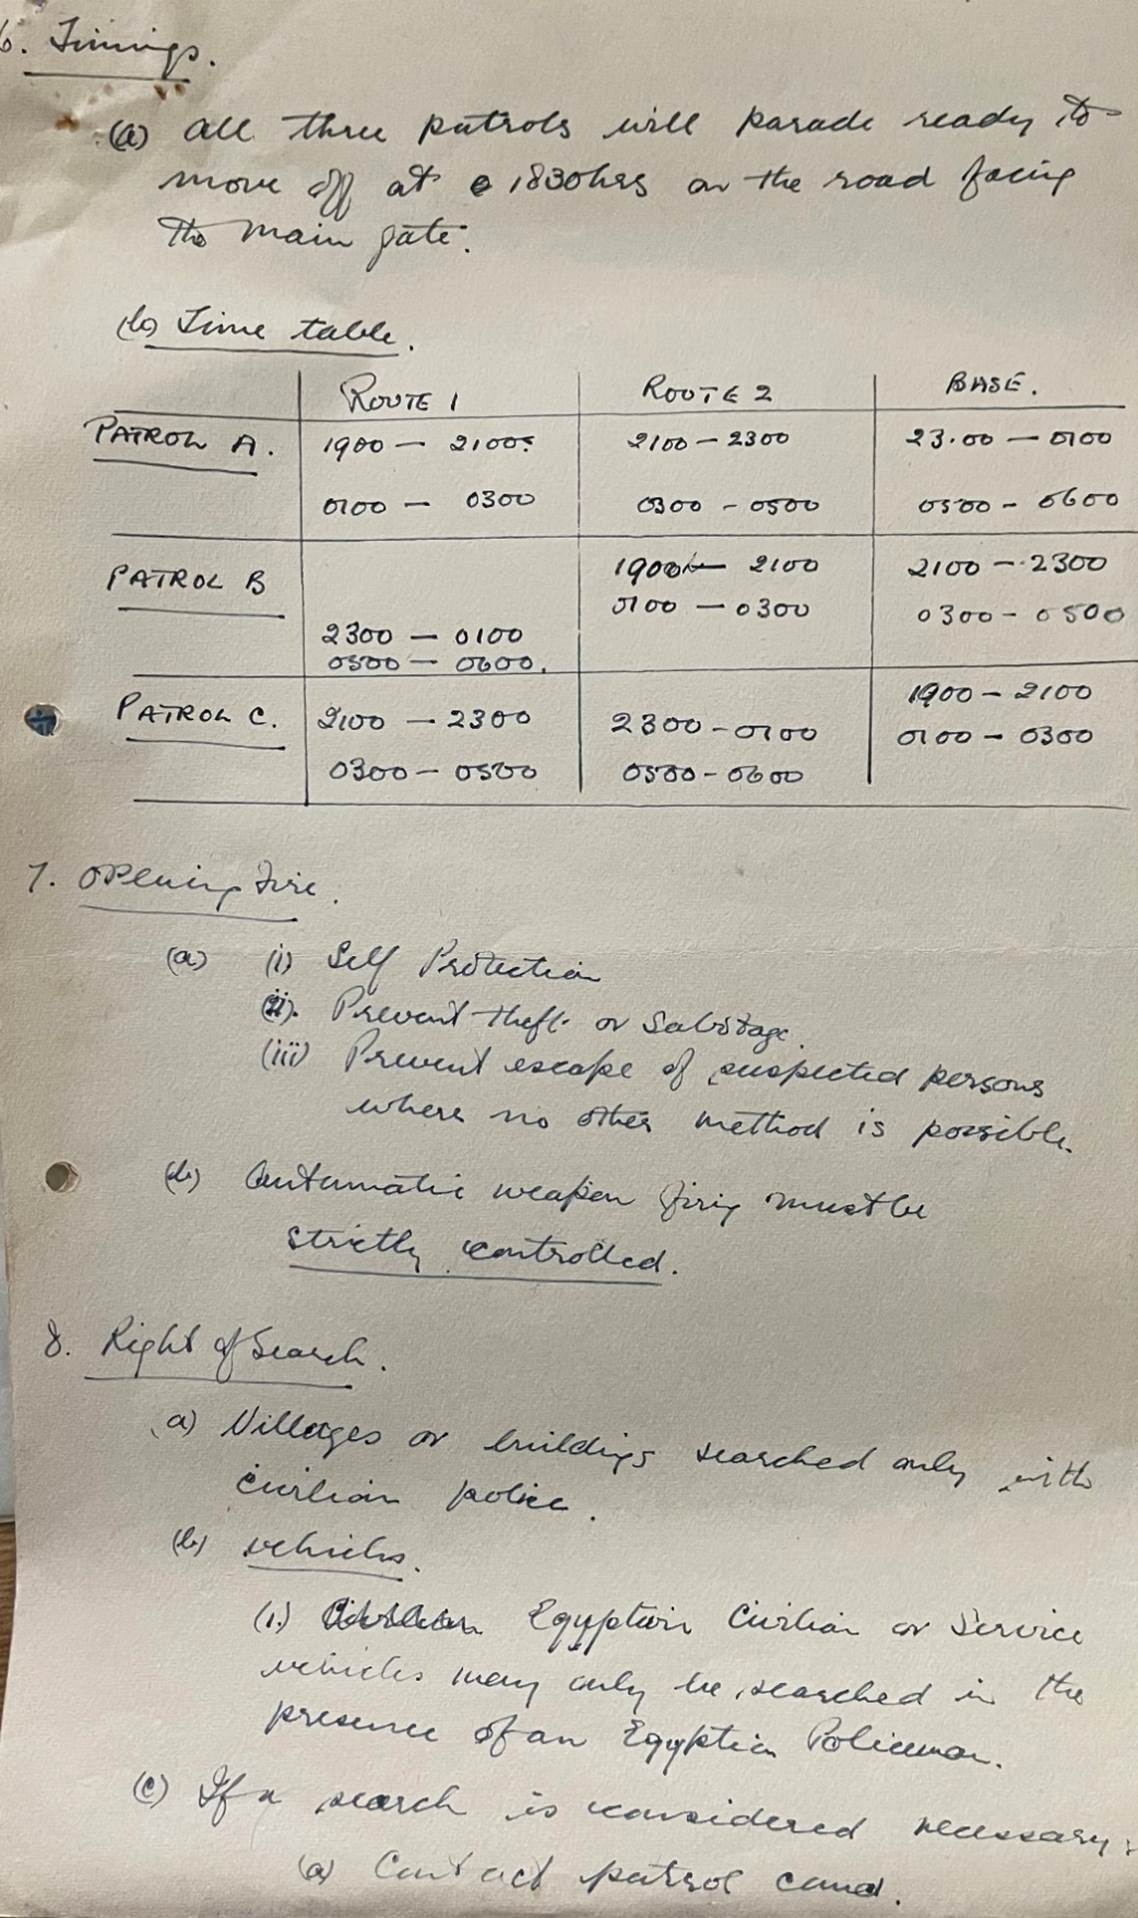 6. Timings.
(a) All three patrols will parade ready to
move off at 1830hrs on the road facing
the main gate.
(b) Time table.
ROUTE 1 ROUTE 2 BASE.
PATROL A. 1900 — 2100 2100 — 2300 23.00 — 0100
0100 — 0300 0300 - 0500 0500 - 0600
PATROL B 1900 — 2100 2100 — 2300
0100 — 0300 0300 - 0500
2300 — 0100
0500 — 0600.
PATROL C. 2100 — 2300 2300 - 0100 1900 - 2100
0100 - 0300
0300 — 0500 0500 - 0600
7. Opening Fire.
(a) (i) Self Protection
(ii). Prevent theft or Sabotage.
(iii) Prevent escape of suspected persons
where no other method is possible.
(b) Automatic weapon firing must be
strictly controlled.
8. Right of Search.
a) Villages or buildings searched only with
civilian police.
(b) vehicles.
(i.) Egyptian Civilian or Service
vehicles may only be searched in the
presence of an Egyptian Policeman.
(c) If a search is considered necessary:
(a) Contact patrol comd.